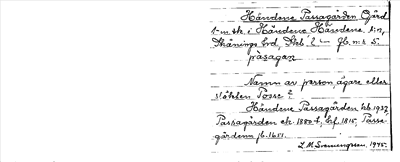 Håndene Passagården Gård
1 mtk. i Håndene Håndene sn,
Skånings hd, Skbl. 2 — Jb. m s 5.
påsagaṛ
Namn av person, ägare eller
släkten Posse?
Håndene Passagården hb 1937
Passagården ek 1880-t, hf. 1815, Passe
gårdenn jb. 1651.
L.M. Svenungsson, 1945.